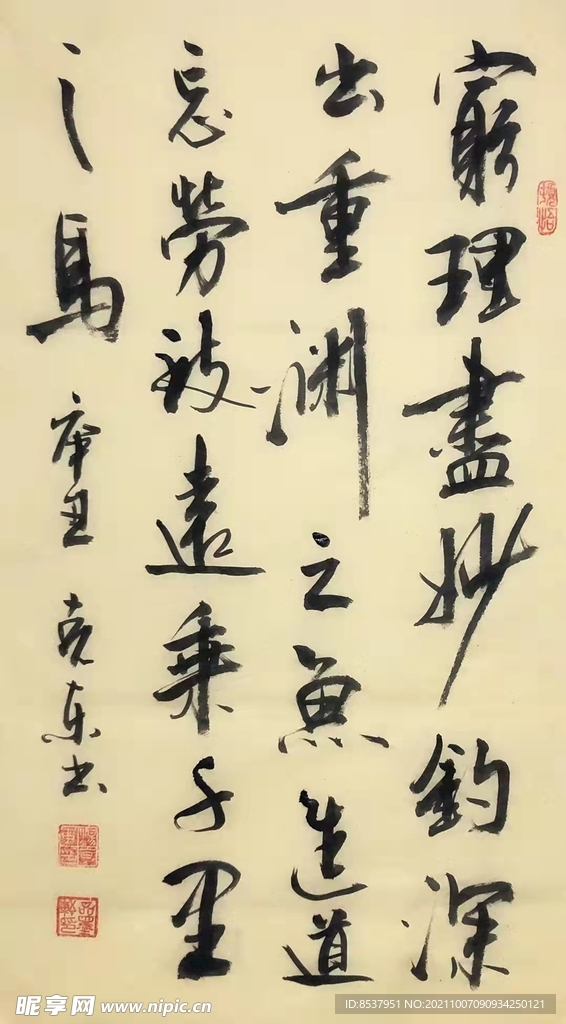 窮理盡妙釣深
出重淵之魚造道
忘勞致遠乘千里
之馬 庚丑 克东书
昵享网 www.nipic.cn
ID:8537951 NO:20211007090934250121